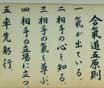 合氣道五原則
一、氣が出ている。
二、相手の心を知る。
三、相手の氣を尊ぶ。
四、相手の立場に立つ。
五、率先躬行。